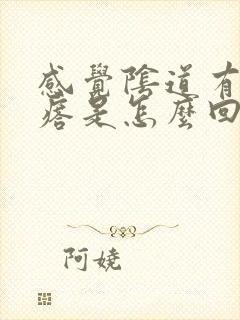 感覺陰道有
痞是怎麼回
阿嬈